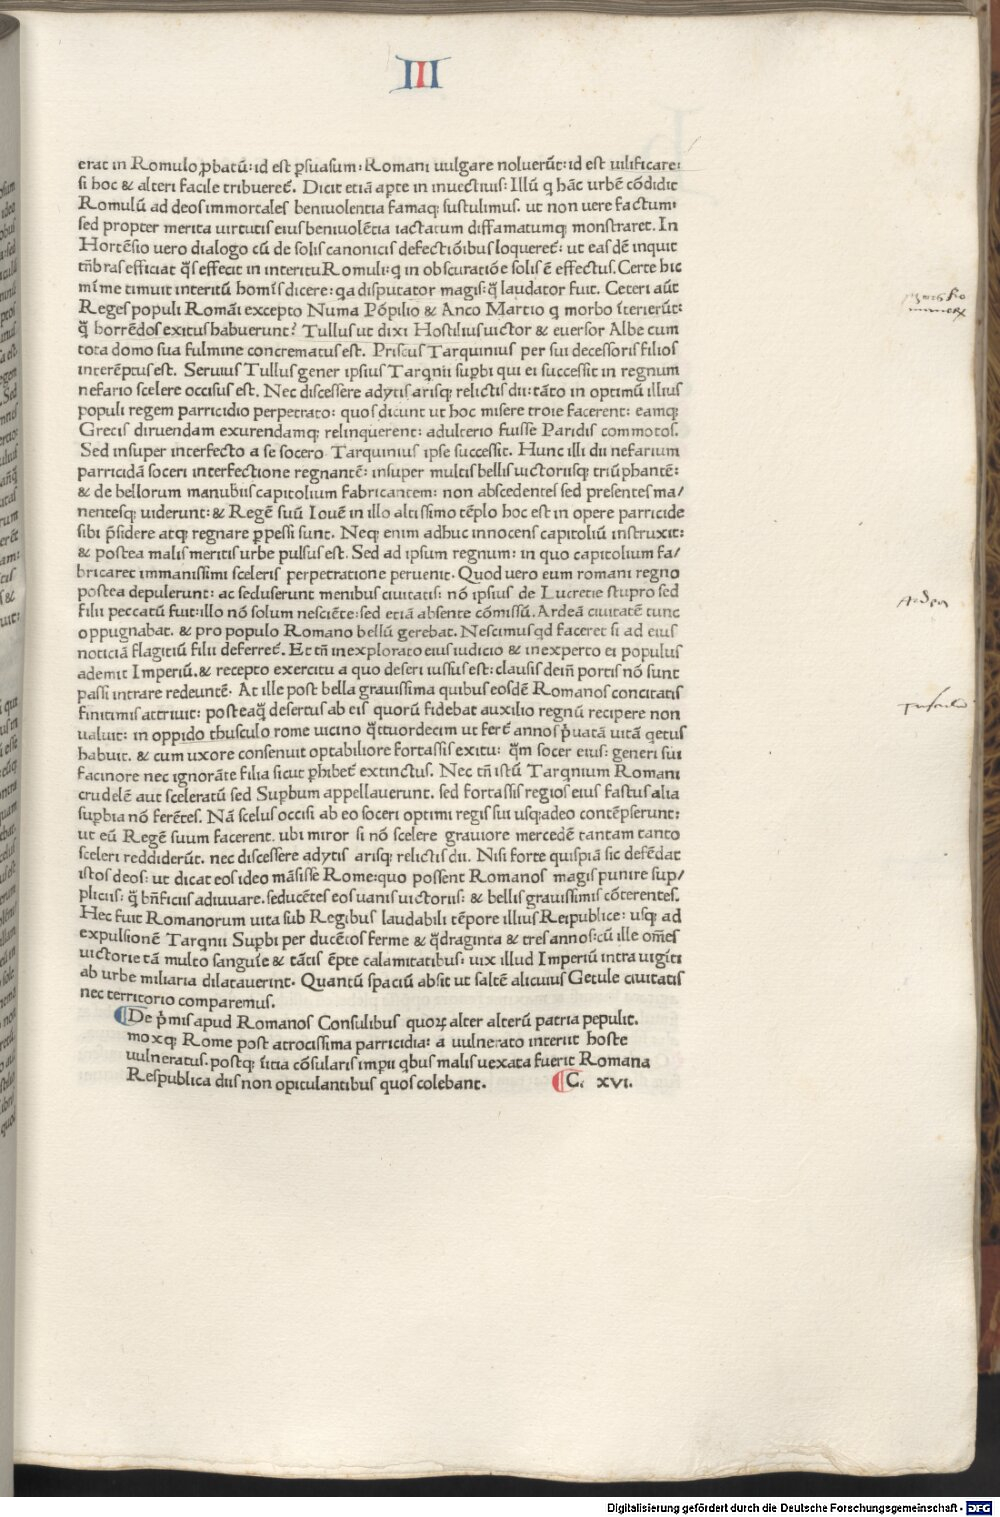 III
erat in Romulo ꝓbatũ: id est ꝑsuasum: Romani uulgare noluerũt: id est uilificare:
si hoc & alteri facile tribueret̃. Dicit etiã apte in inuectiuis: Illũ q hãc urbẽ cõdidit
Romulũ ad deos immortales beniuolentia famaqꝫ sustulimus. ut non uere factum:
sed propter merita uirtutis eius beniuolẽtia iactatum diffamatumqꝫ monstraret. In
Hortẽsio uero dialogo cũ de solis canonicis defectiõibus loqueret̃: ut easdẽ inquit
tñbras efficiat q̃s effecit in interitu Romuli: q in obscuratiõe solis ẽ effectus. Certe hic
mĩme timuit interitũ homĩs dicere: qa disputator magis: q̃ laudator fuit. Ceteri aũt
Reges populi Romãi excepto Numa Põpilio & Anco Martio q morbo ĩterierũt:
q̃ horrẽdos exitus habuerunt? Tullus ut dixi Hostilius uictor & euersor Albe cum
tota domo sua fulmine concrematus est. Priscus Tarquinius per sui decessoris filios
interẽptus est. Seruius Tullus gener ipsius Tarqnii suꝑbi qui ei successit in regnum
nefario scelere occisus est. Nec discessere adytis arisqꝫ relictis dii: tãto in optimũ illius
populi regem parricidio perpetrato: quos dicunt ut hoc misere troie facerent: eamqꝫ
Grecis diruendam exurendamqꝫ relinquerent: adulterio fuisse Paridis commotos.
Sed insuper interfecto a se socero Tarquinius ipse successit. Hunc illi dii nefarium
parricidã soceri interfectione regnantẽ: insuper multis bellis uictoriisqꝫ triũphantẽ:
& de bellorum manubiis capitolium fabricantem: non abscedentes sed presentes ma/
nentesqꝫ uiderunt: & Regẽ suũ Iouẽ in illo altissimo tẽplo hoc est in opere parricide
sibi p̃sidere atqꝫ regnare ꝑpessi sunt. Neqꝫ enim adhuc innocens capitoliũ instruxit:
& postea malis meritis urbe pulsus est. Sed ad ipsum regnum: in quo capitolium fa/
bricaret immanissimi sceleris perpetratione peruenit. Quod uero eum romani regno
postea depulerunt: ac secluserunt menibus ciuitatis: nõ ipsius de Lucretie stupro sed
filii peccatũ fuit: illo nõ solum nesciẽte: sed etiã absente cõmissũ. Ardeã ciuitatẽ tunc
oppugnabat. & pro populo Romano bellũ gerebat. Nescimus qd faceret si ad eius
noticiã flagitiũ filii deferret̃. Et tñ inexplorato eius iudicio & inexperto ei populus
ademit Imperiũ. & recepto exercitu a quo deseri iussius est: clausis deiñ portis nõ sunt
passi intrare redeuntẽ. At ille post bella grauissima quibus eosdẽ Romanos concitatis
finitimis attriuit: posteaq̃ desertus ab eis quorũ fidebat auxilio regnũ recipere non
ualuit: in oppido thusculo rome uicino q̃ttuordecim ut fert̃ annos p̃uatã uitã qetus
habuit. & cum uxore consenuit optabiliore fortassis exitu: q̃m socer eius: generi sui
facinore nec ignorãte filia sicut ꝑhibet̃ extinctus. Nec tñ istũ Tarqnium Romani
crudelẽ aut sceleratũ sed Suꝑbum appellauerunt. sed fortassis regios eius fastus alia
suꝑbia nõ ferẽtes. Nã scelus occisi ab eo soceri optimi regis sui usqꝫ adeo contẽpserunt:
ut eũ Regẽ suum facerent. ubi miror si nõ scelere grauiore mercedẽ tantam tanto
sceleri reddiderũt. nec discessere adytis arisqꝫ relictis dii. Nisi forte quispiã sic defẽdat
istos deos: ut dicat eos ideo mãsisse Rome: quo possent Romanos magis punire sup/
pliciis: q̃ bñficiis adiuuare. seducẽtes eos uanis uictoriis: & bellis grauissimis cõterentes.
Hec fuit Romanorum uita sub Regibus laudabili tẽpore illius Reipublice: usqꝫ ad
expulsionẽ Tarqnii Suꝑbi per ducẽtos ferme & q̃draginta & tres annos: cũ ille om̃es
uictorie tã multo sanguĩe & tãtis ẽpte calamitatibus: uix illud Imperiũ intra uigĩti
ab urbe miliaria dilatauerint. Quantũ spaciũ absit ut saltẽ alicuius Getule ciuitatis
nec territorio comparemus.
De p̃mis apud Romanos Consulibus quoꝝ alter alterũ patria pepulit.
moxqꝫ Rome post atrocissima parricidia: a uulnerato interiit hoste
uulneratus. postqꝫ ĩitia cõsularis impii qbus malis uexata fuerit Romana
Respublica diis non opitulantibus quos colebant. C. XVI.
Ardea
Tusculo
Digitalisierung gefördert durch die Deutsche Forschungsgemeinschaft - DFG